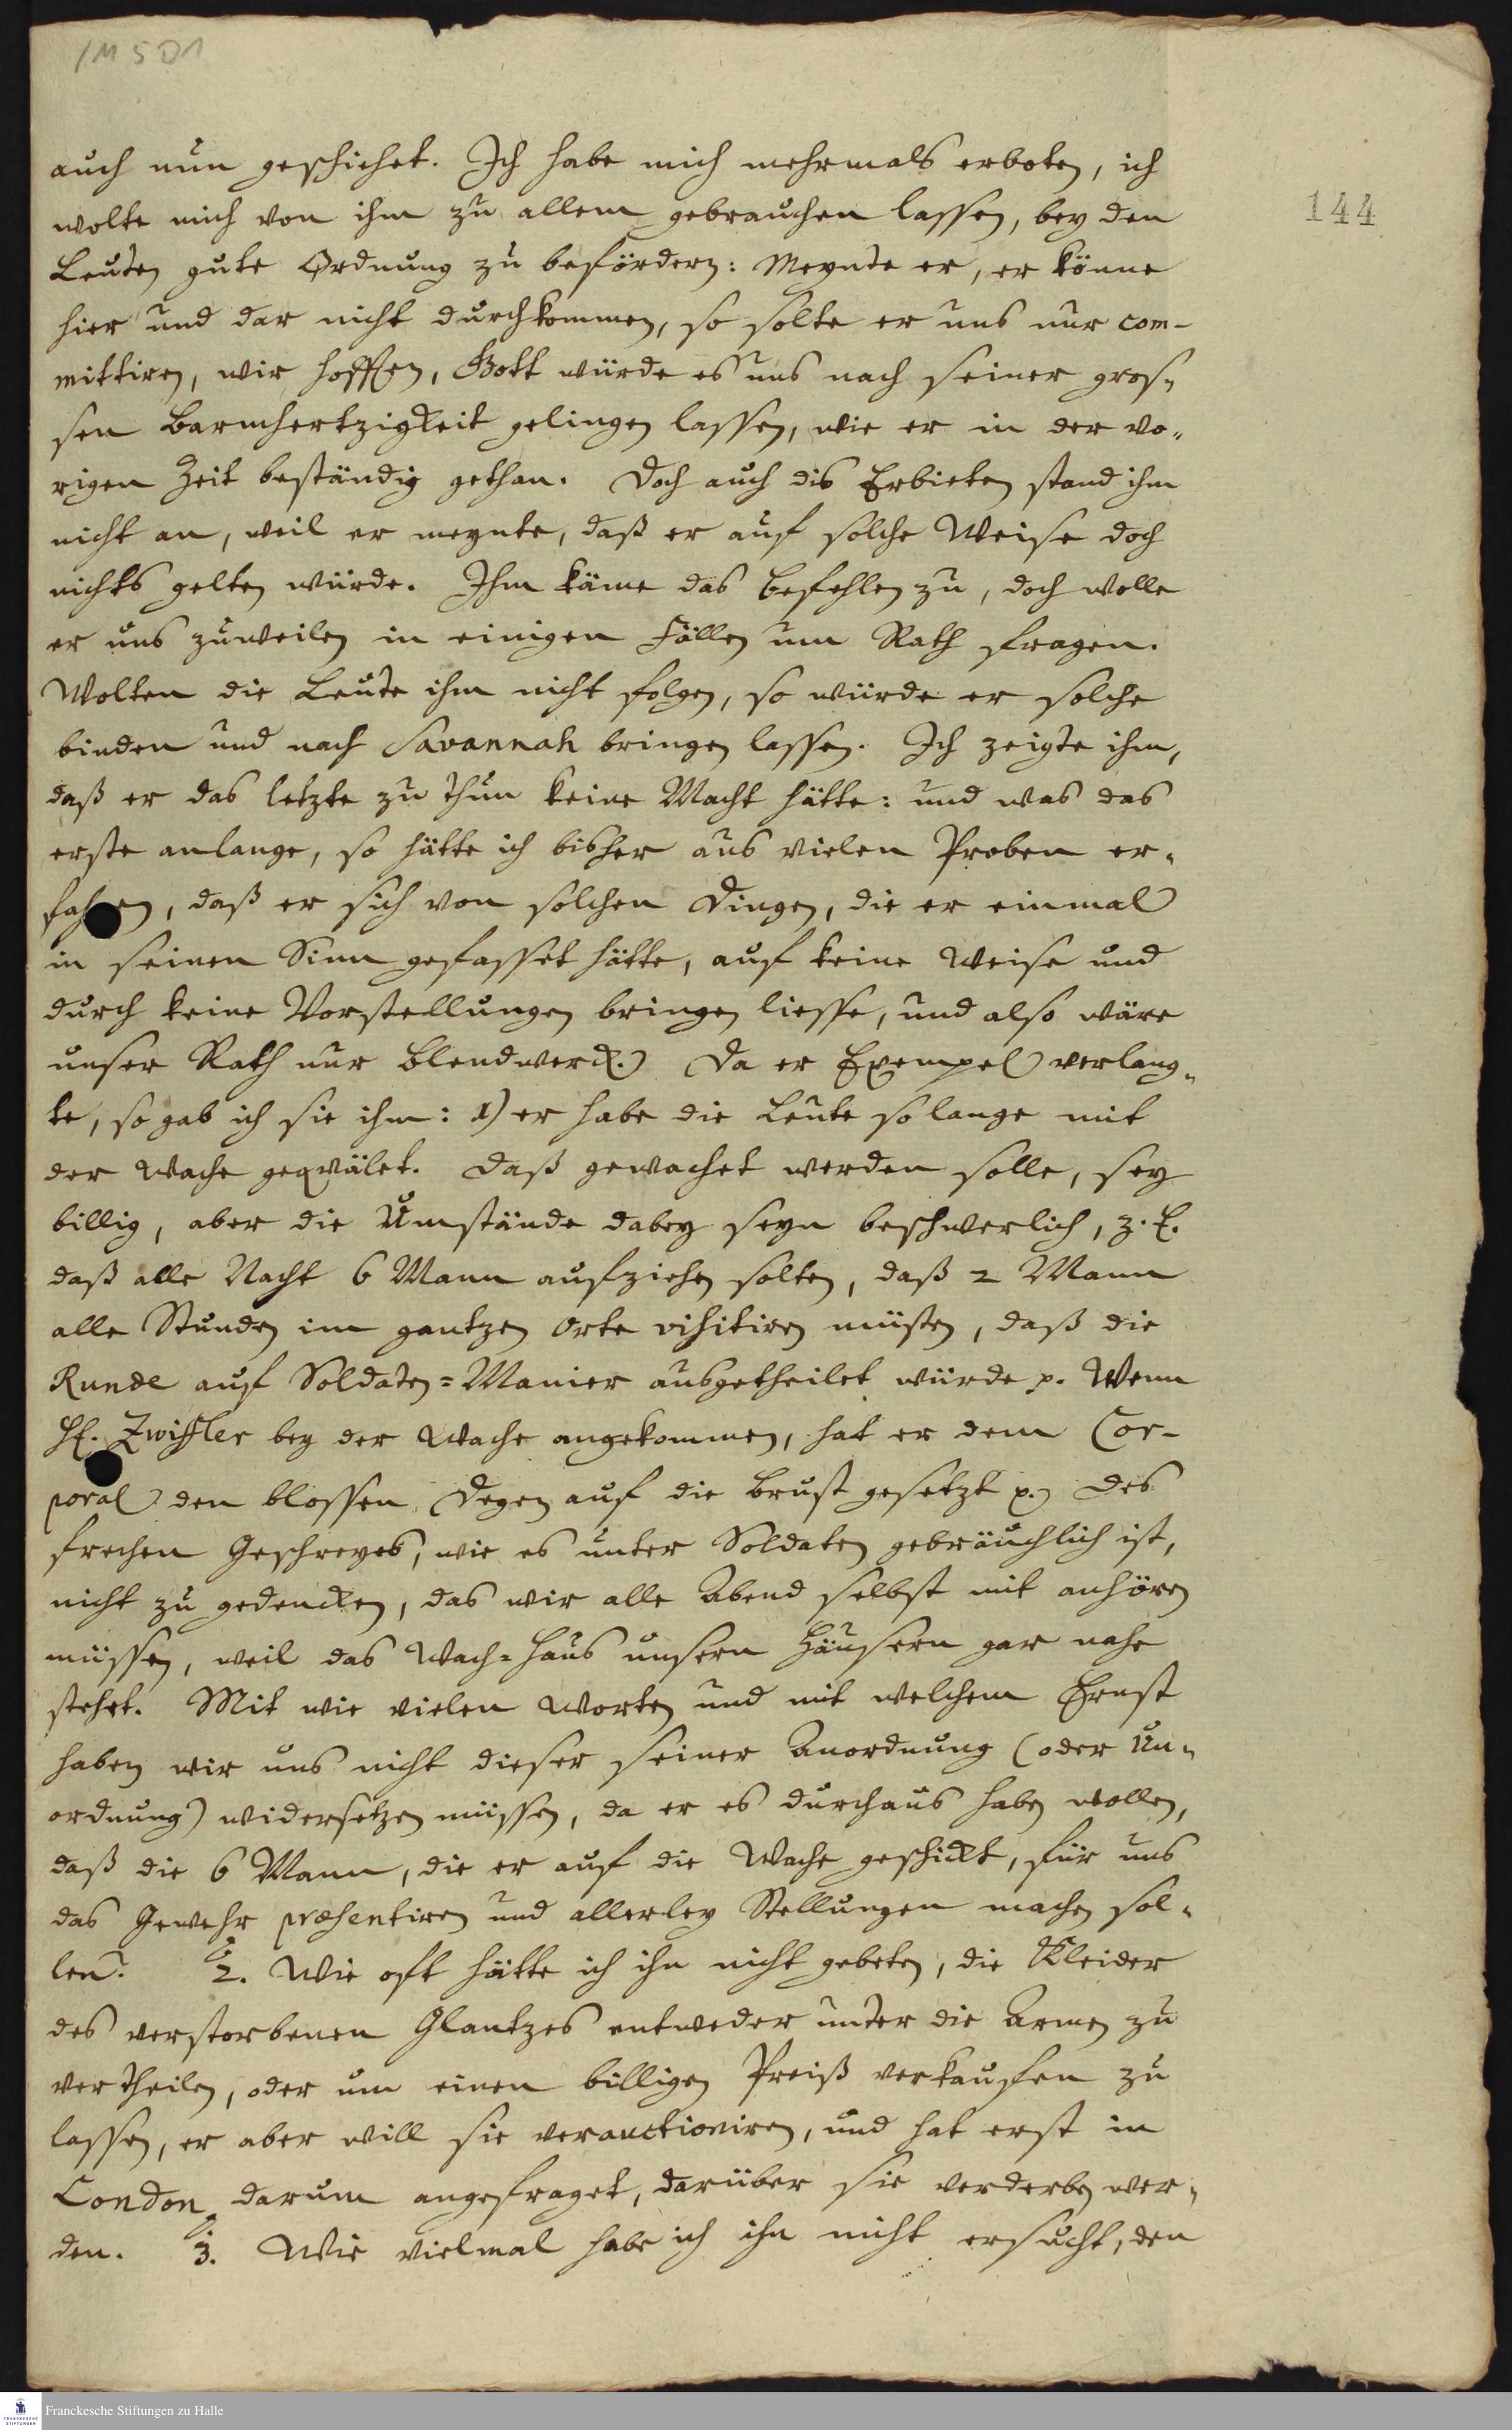 1M 5 D1
144
auch nun geschiehet. Ich habe mich mehrmals erboten, ich
wolte mich von ihm zu allem gebrauchen lassen, bey den
Leuten gute Ordnung zu befördern: Meynte er, er könne
hier und dar nicht durchkommen, so solte er uns nur com-
mittiren, wir hoffen, Gott würde es uns nach seiner gros-
sen Barmhertzigkeit gelingen lassen, wie er in der vo-
rigen Zeit beständig gethan. Doch auch dis Erbieten stand ihm
nicht an, weil er meynte, daß er auf solche Weise doch
nichts gelten würde. Ihm käme das Befehlen zu, doch wolle
er uns zuweilen in einigen Fällen um Rath fragen.
Wolten die Leute ihm nicht folgen, so würde er solche
binden und nach Savannah bringen lassen. Ich zeigte ihm,
daß er das letzte zu thun keine Macht hätte: und was das
erste anlange, so hätte ich bisher aus vielen Proben er-
fahren, daß er sich von solchen Dingen, die er einmal
in seinen Sinn gefasset hätte, auf keine Weise und
durch keine Vorstellungen bringen liesse, und also wäre
unser Rath nur Blendwerck. Da er Exempel verlang-
te, so gab ich sie ihm: 1) er habe die Leute so lange mit
der Wache geqvälet. Daß gewachet werden solle, sey
billig, aber die Umstände dabey seyn beschwerlich, z. E.
daß alle Nacht 6 Mann aufziehen solten, daß 2 Mann
alle Stunden im gantzen Orte visitiren müsten, daß die
Runde auf Soldaten=Manier ausgetheilet würde p. Wenn
H. Zwiffler bey der Wache angekommen, hat er dem Cor-
poral den blossen Degen auf die Brust gesetzt p. Des
frechen Geschreyes, wie es unter Soldaten gebräuchlich ist,
nicht zu gedencken, das wir alle Abend selbst mit anhören
müssen, weil das Wach=Haus unsern Häusern gar nahe
stehet. Mit wie vielen Worten und mit welchem Ernst
haben wir uns nicht dieser seiner Anordnung (oder Un-
ordnung) widersetzen müssen, da er es durchaus haben wollen,
daß die 6 Mann, die er auf die Wache geschickt, für uns
das Gewehr præsentiren und allerley Stellungen machen sol-
len? 2. Wie oft hätte ich ihn nicht gebeten, die Kleider
des verstorbenen Glantzes entweder unter die Armen zu
vertheilen, oder um einen billigen Preiß verkaufen zu
lassen, er aber will sie verauctioniren, und hat erst in
London darum angefraget, darüber sie verderben wer-
den. 3. Wie vielmal habe ich ihn nicht ersucht, den
FRANCKESCHE
STIFTUNGEN
Franckesche Stiftungen zu Halle